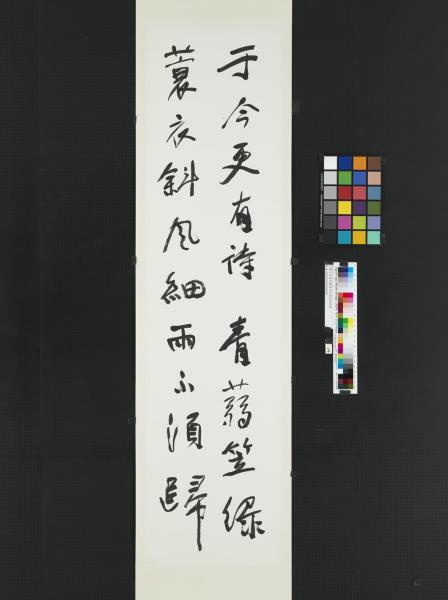 于今更有詩青蒻笠綠
蓑衣斜風細雨不須歸